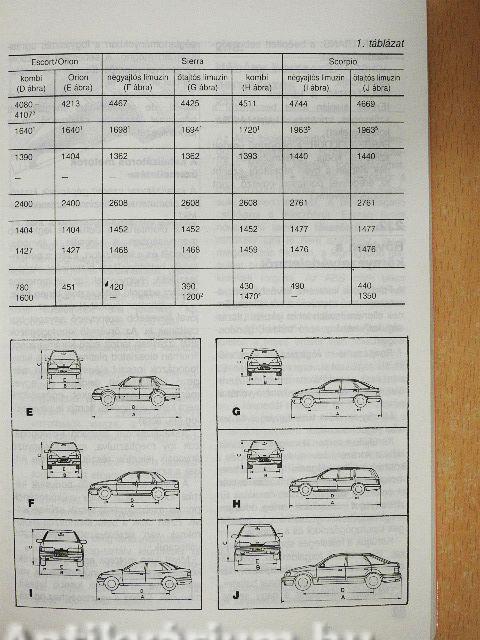 1. táblázat
Escort/Orion Sierra Scorpio
kombi Orion négyajtós limuzin ötajtós limuzin kombi négyajtós limuzin ötajtós limuzin
(D ábra) (E ábra) (F ábra) (G ábra) (H ábra) (I ábra) (J ábra)
4080 – 4213 4467 4425 4511 4744 4669
4107³
1640¹ 1640¹ 1698¹ 1694¹ 1720¹ 1963⁵ 1963⁵
1390 1404 1362 1362 1393 1440 1440
– – – – – – –
2400 2400 2608 2608 2608 2761 2761
1404 1404 1452 1452 1452 1477 1477
1427 1427 1468 1468 1459 1476 1476
780 451 420 390 430 490 440
1600 – 1200² 1470⁴ 1350
E
G
F
H
I
J
Antikvárium.hu